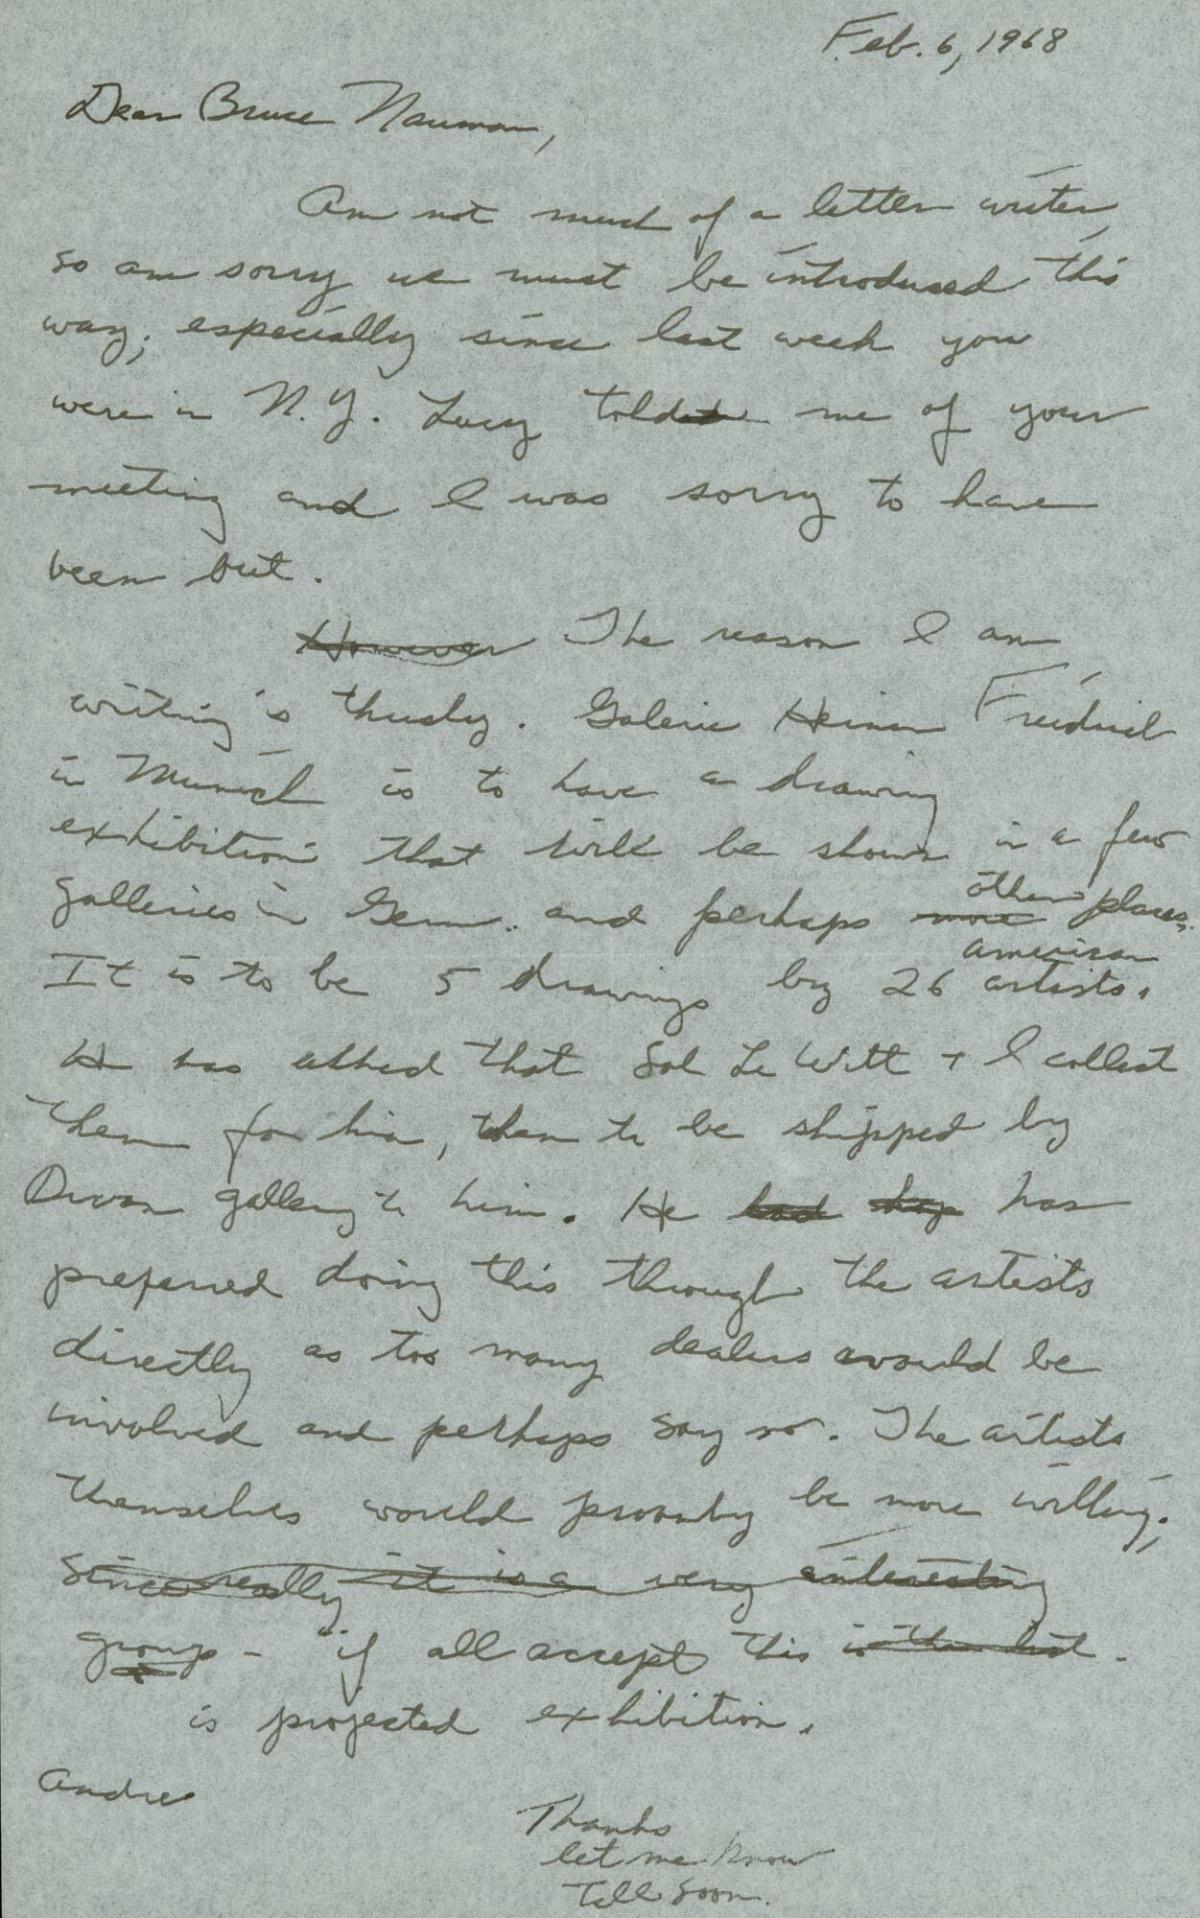 Feb. 6, 1968
Dear Bruce Nauman,
Am not much of a letter writer,
so am sorry we must be introduced this
way; especially since last week you
were in N.Y. Lucy told me of your
meeting and I was sorry to have
been out.
However The reason I am
writing is thusly. Galerie Heiner Freidrich
in Munich is to have a drawing
exhibition that will be shown in a few
galleries in Germ. and perhaps more other places.
It is to be 5 drawings by 26 american artists.
He has asked that Sol Le Witt + I collect
them for him, then to be shipped by
Dwan gallery to him. He had has
preferred doing this through the artists
directly as too many dealers would be
involved and perhaps say no. The artists
themselves would probably be more willing;
Since really it is a very interesting
group - if all accept this is the list.
is projected exhibition.
Andre
Thanks
let me know
Tell soon.